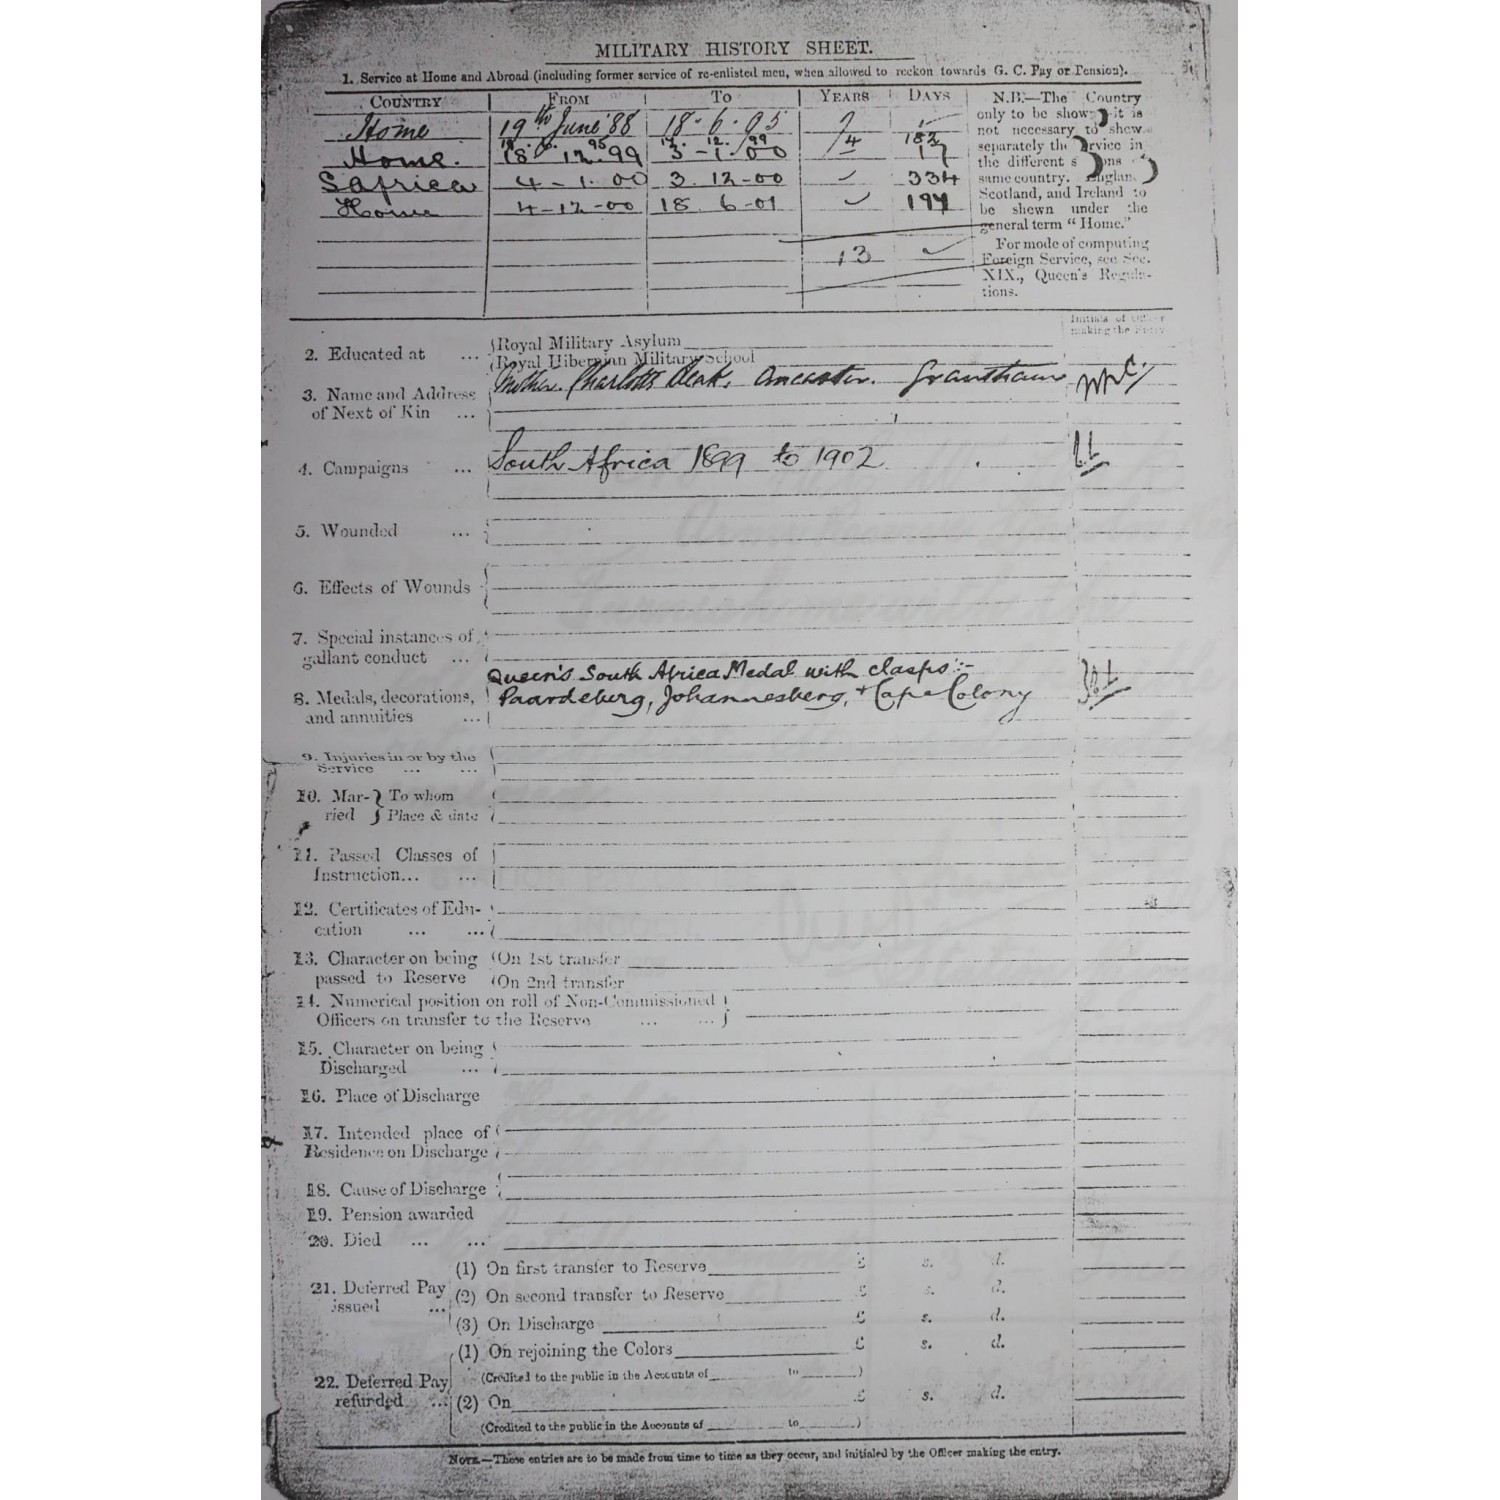 MILITARY HISTORY SHEET.
1. Service at Home and Abroad (including former service of re-enlisted men, when allowed to reckon towards G. C. Pay or Pension).
COUNTRY FROM TO YEARS DAYS
Home 19th June '88 18·6·95 7 –
19. 6. 95 17. 12. /99 4 182
Home. 18. 12.99 3-1.00 17
S africa 4-1.00 3.12-00 334
Home 4-12-00 18 6-01 197
13
N.B.—The Country
only to be show it is
not necessary to shew
separately the service in
the different s ons
same country. England
Scotland, and Ireland to
be shewn under the
general term "Home."
For mode of computing
Foreign Service, see Sec.
XIX., Queen's Regula-
tions.
Initials of Officer
making the Entry
2. Educated at ... Royal Military Asylum
Royal Hibernian Military School
3. Name and Address
of Next of Kin ... Mother. Charlotte Ancaster. Grantham
4. Campaigns ... South Africa 1899 to 1902
5. Wounded ...
6. Effects of Wounds
7. Special instances of
gallant conduct ...
8. Medals, decorations,
and annuities ... Queen's South Africa Medal with clasps:-
Paardeburg, Johannesberg, + Cape Colony
9. Injuries in or by the
Service ... ...
10. Mar- } To whom
ried } Place & date
11. Passed Classes of
Instruction... ...
12. Certificates of Edu-
cation ... ...
13. Character on being (On 1st transfer
passed to Reserve (On 2nd transfer
14. Numerical position on roll of Non-Commissioned
Officers on transfer to the Reserve ... ...
15. Character on being
Discharged ...
16. Place of Discharge
17. Intended place of
Residence on Discharge
18. Cause of Discharge
19. Pension awarded
20. Died ... ...
21. Deferred Pay
issued ...
(1) On first transfer to Reserve £ s. d.
(2) On second transfer to Reserve £ s. d.
(3) On Discharge £ s. d.
22. Deferred Pay
refunded ...
(1) On rejoining the Colors £ s. d.
(Credited to the public in the Accounts of to )
(2) On £ s. d.
(Credited to the public in the Accounts of to )
NOTE.—These entries are to be made from time to time as they occur, and initialed by the Officer making the entry.